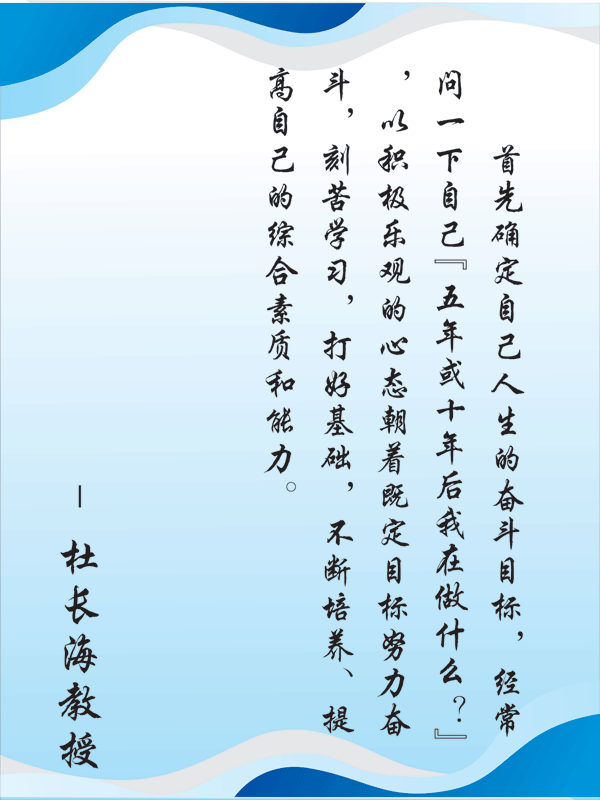 首先确定自己人生的奋斗目标，经常
问一下自己『五年或十年后我在做什么？』
，以积极乐观的心态朝着既定目标努力奋
斗，刻苦学习，打好基础，不断培养、提
高自己的综合素质和能力。
— 杜长海教授